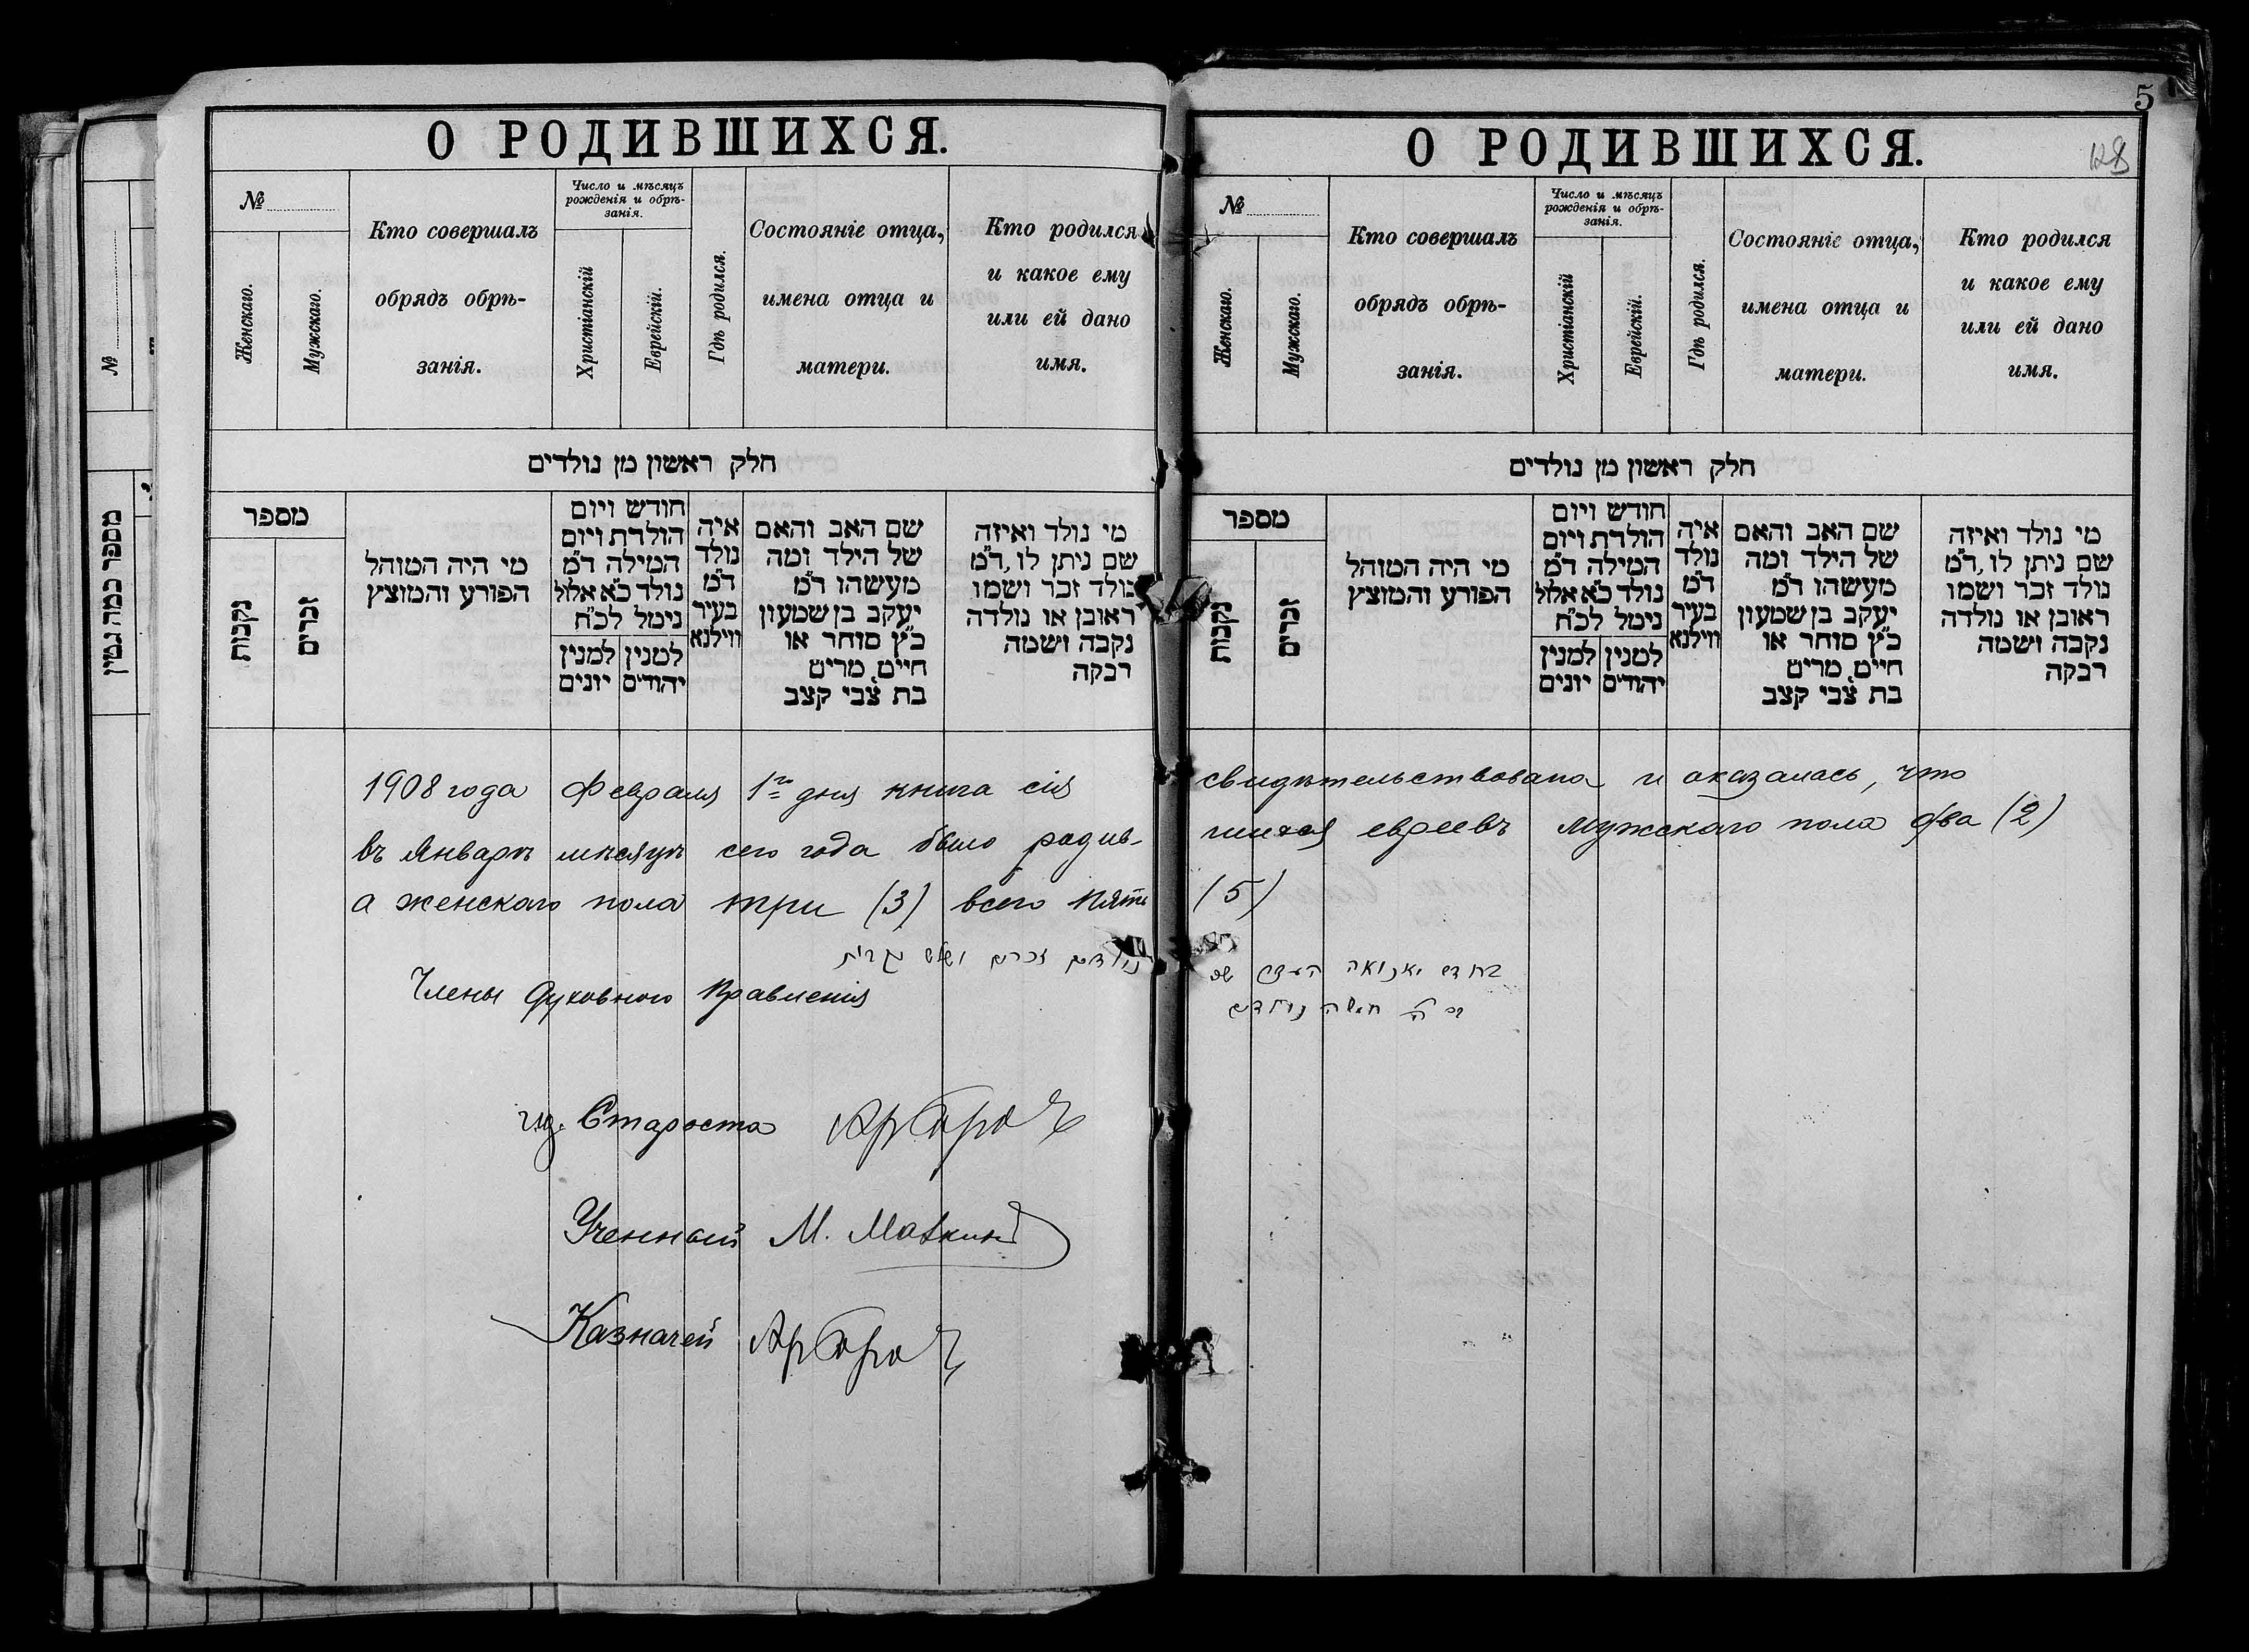 О РОДИВШИХСЯ.
№
Женскаго.
Мужскаго.
Кто совершалъ
обрядъ обрѣ-
занія.
Число и мѣсяцъ
рожденія и обрѣ-
занія.
Христіанскій
Еврейскій.
Гдѣ родился.
Состояніе отца,
имена отца и
матери.
Кто родился
и какое ему
или ей дано
имя.
חלק ראשון מן נולדים
מספר
נקבות
זכרים
מי היה המוהל
הפורע והמוצץ
חודש ויום
הולדת ויום
המילה ד״מ
נולד כ״א אלול
נימל לכ״ח
למנין יהודים
למנין יונים
איה
נולד
ד״מ
בעיר
ווילנא
שם האב והאם
של הילד ומה
מעשהו ד״מ
יעקב בן שמעון
כ״ץ סוחר או
חייט, מרים
בת צבי קצב
מי נולד ואיזה
שם ניתן לו, ד״מ
נולד זכר ושמו
ראובן או נולדה
נקבה ושמה
רבקה
1908 года Февраля 1го дня книга сія
въ Январѣ мѣсяцѣ сего года было родив-
а женскаго пола три (3) всего пять
Члены Духовнаго Правленія
Староста
Ученный М.
Казначей
№
מספר כמה גטין
5
О РОДИВШИХСЯ.
128
№
Женскаго.
Мужскаго.
Кто совершалъ
обрядъ обрѣ-
занія.
Число и мѣсяцъ
рожденія и обрѣ-
занія.
Христіанскій
Еврейскій.
Гдѣ родился.
Состояніе отца,
имена отца и
матери.
Кто родился
и какое ему
или ей дано
имя.
חלק ראשון מן נולדים
מספר
נקבות
זכרים
מי היה המוהל
הפורע והמוצץ
חודש ויום
הולדת ויום
המילה ד״מ
נולד כ״א אלול
נימל לכ״ח
למנין יהודים
למנין יונים
איה
נולד
ד״מ
בעיר
ווילנא
שם האב והאם
של הילד ומה
מעשהו ד״מ
יעקב בן שמעון
כ״ץ סוחר או
חייט, מרים
בת צבי קצב
מי נולד ואיזה
שם ניתן לו, ד״מ
נולד זכר ושמו
ראובן או נולדה
נקבה ושמה
רבקה
свидѣтельствована и оказалась, что
шихся евреевъ мужскаго пола два (2)
(5)